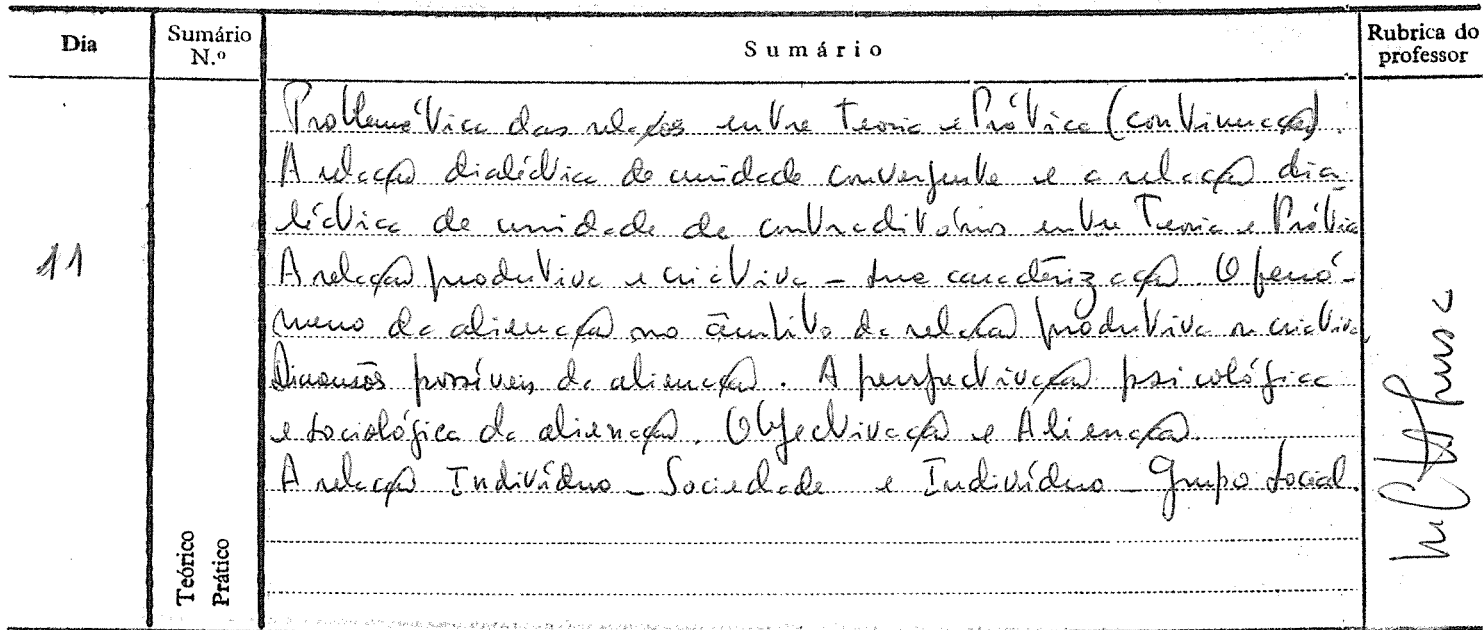 Dia
Sumário N.º
Sumário
Rubrica do professor
Problemática das relações entre Teoria e Prática (continuação).
A relação dialéctica de unidade convergente e a relação dia
léctica de unidade de contraditórios entre Teoria e Prática
11
A relação produtiva e criativa - sua caracterização. O fenó-
meno da alienação no âmbito da relação produtiva e criativa.
Dimensões possíveis da alienação. A perspectivação psicológica
e sociológica da alienação. Objectivação e Alienação.
A relação Indivíduo - Sociedade e Indivíduo - Grupo social.
Teórico
Prático